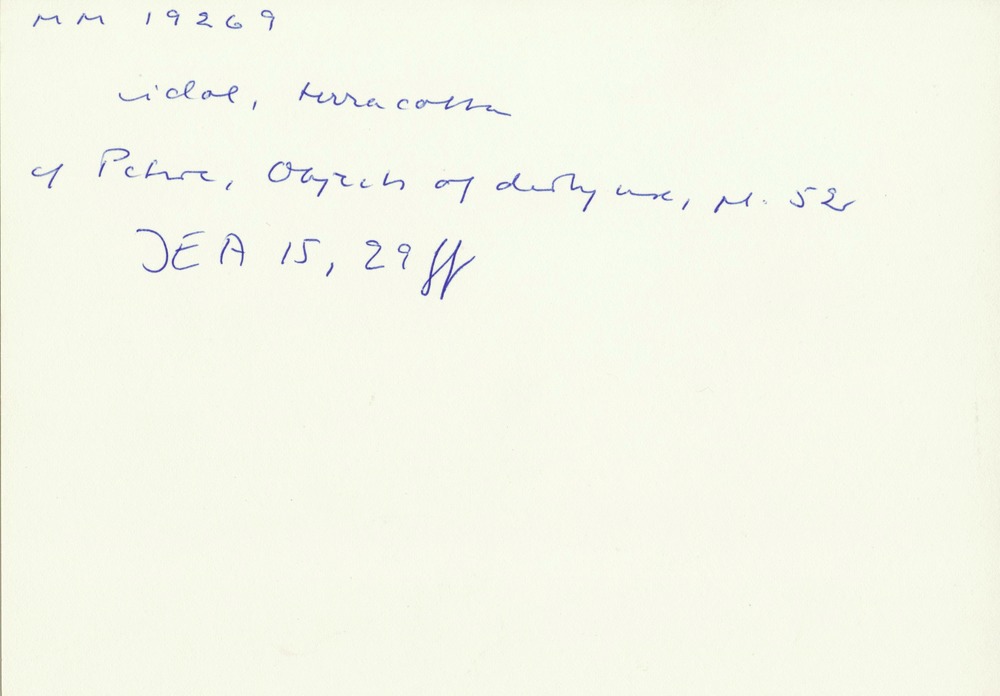 MM 19269
idol, terracotta
cf Petrie, Objects of daily use, pl. 52
JEA 15, 29 ff